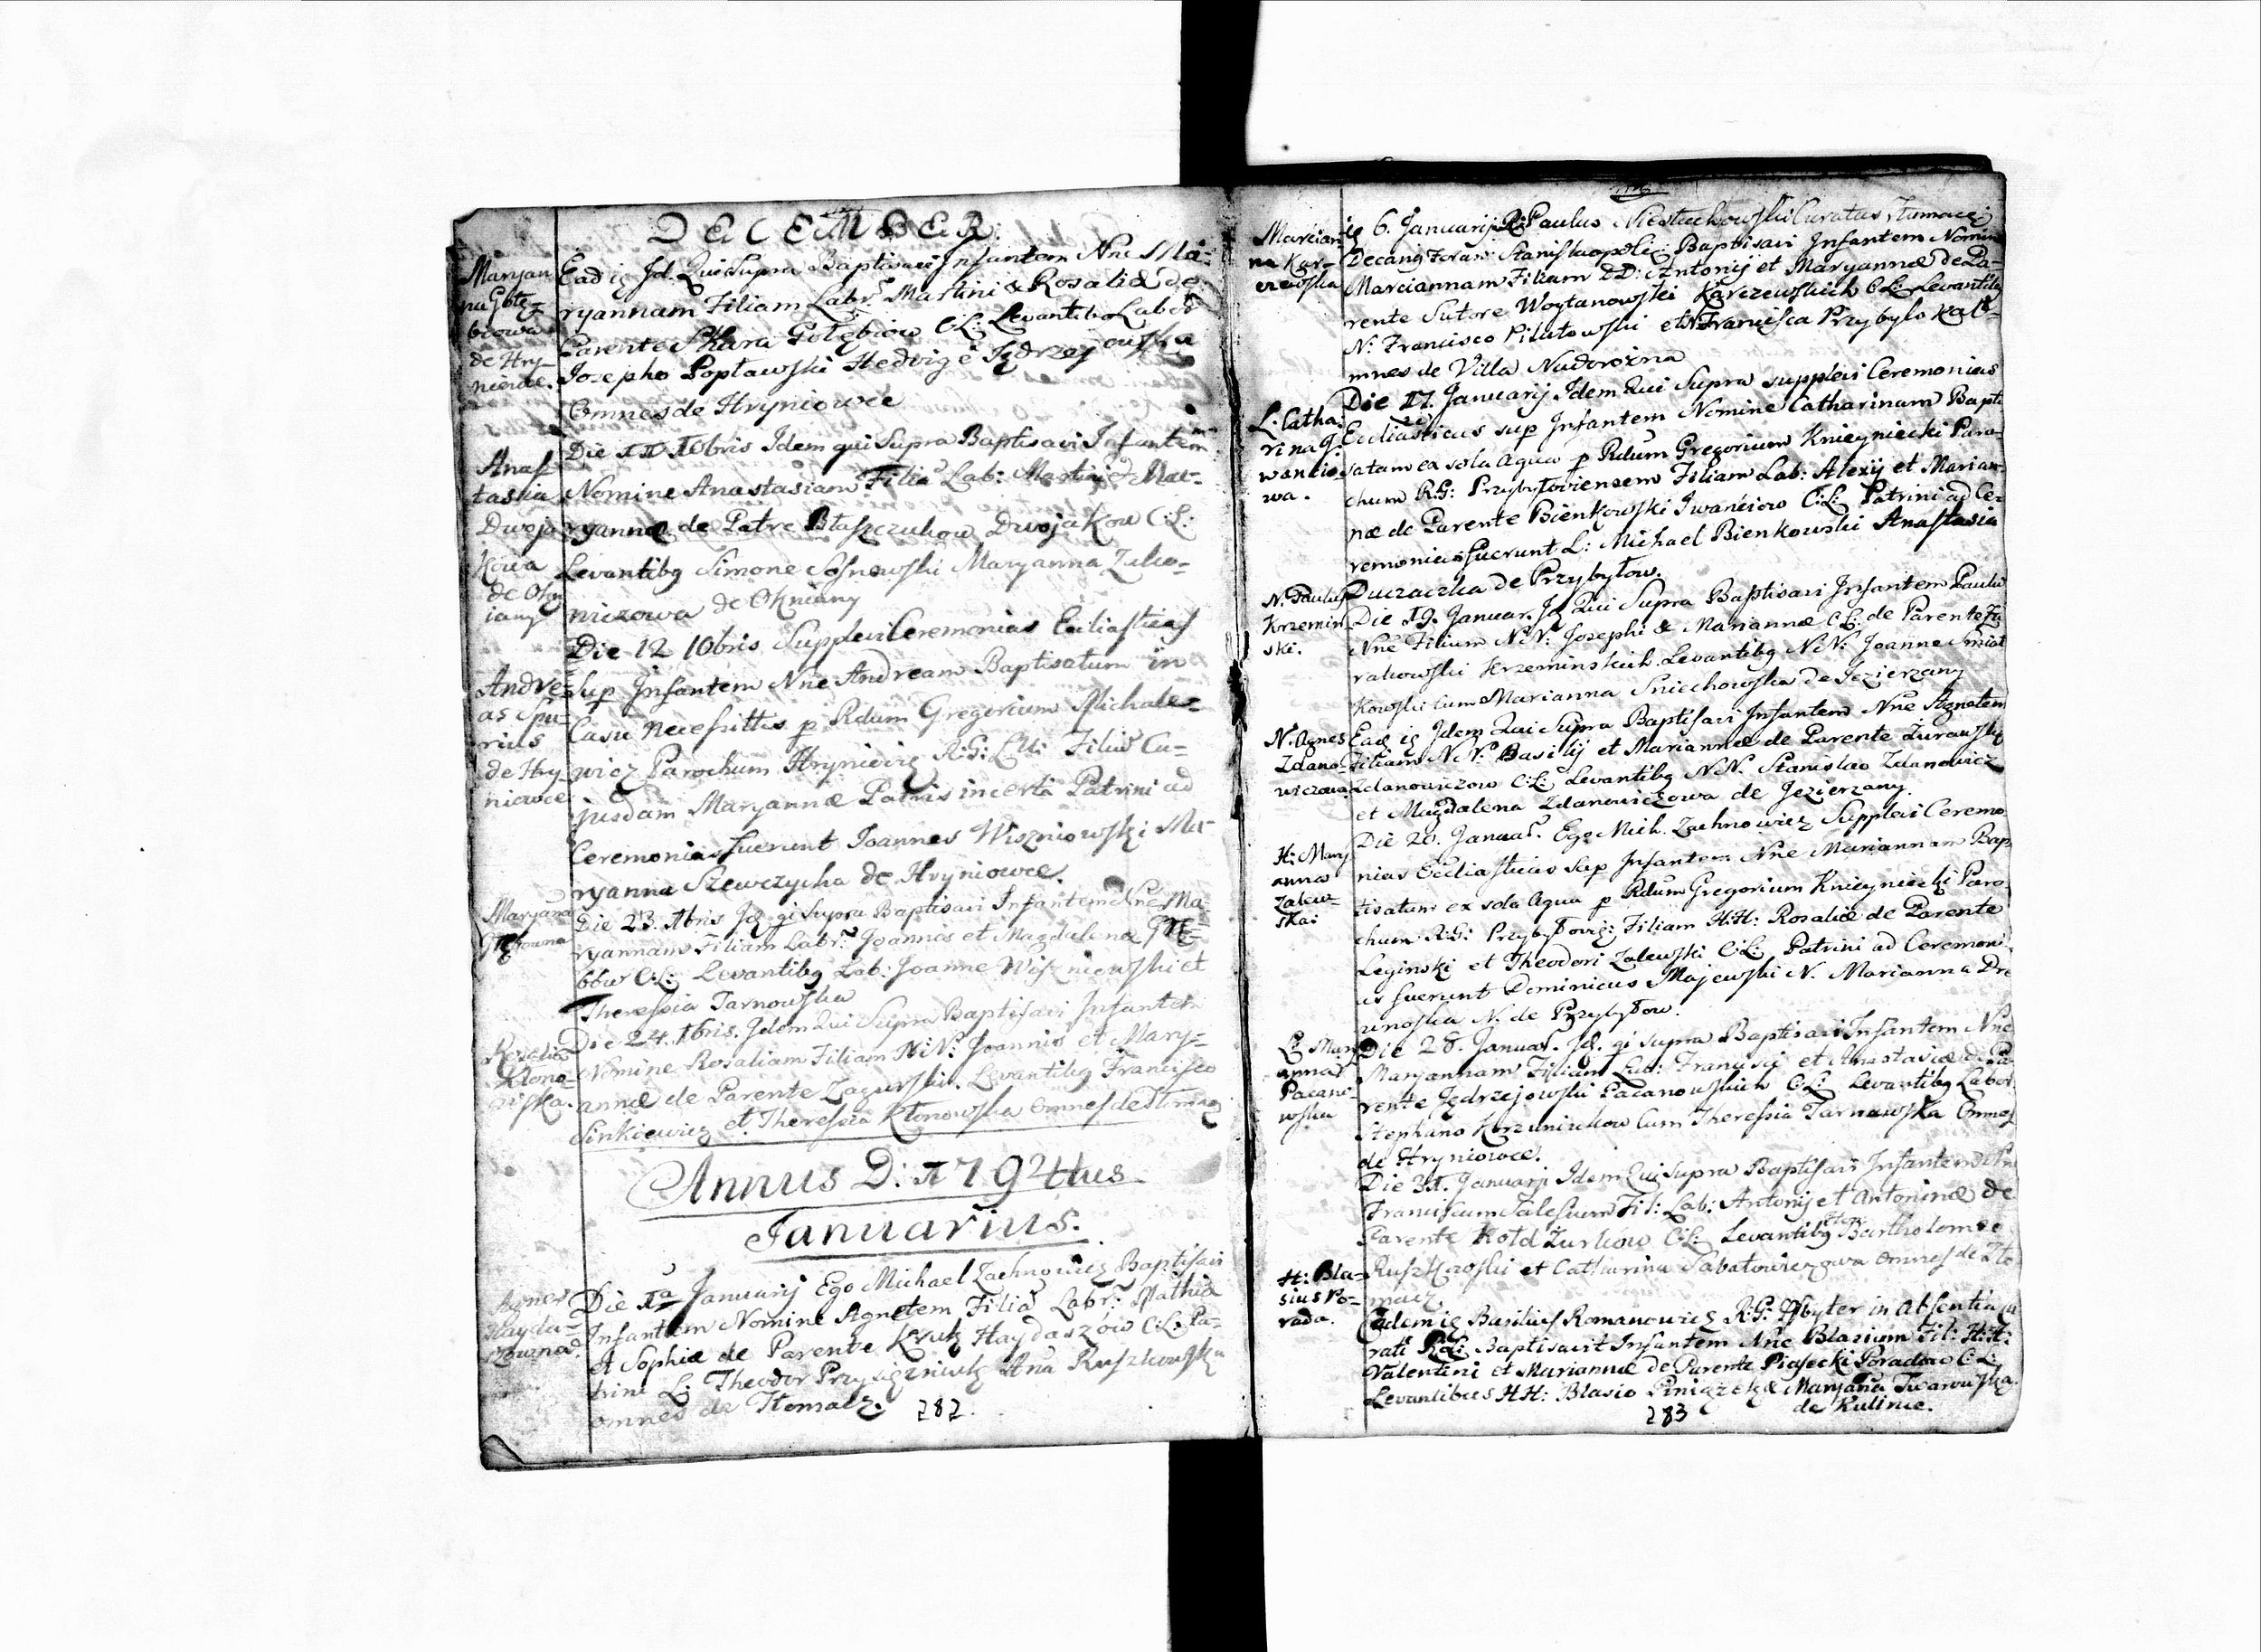 DECEMBER.
Maryan
na Gołę-
biowa
de Hry-
niowce.
Eadie Id. Qui Supra Baptisavi Infantem Nne Ma-
ryannam Filiam Labr. Martini & Rosaliæ de
Parente Skura Gołębiow C:L: Levantibg Labor
Josepho Popławski Hedvige Jędrzejowska
Omnes de Hryniowce
Anas
tasia
Dwoja
kowa
de Okn
iany
Die 11 10bris Idem qui Supra Baptisavi Infantem
Nomine Anastasiam Filiã Lab: Martini & Mar-
yannæ de Patre Błaszczukow Dwojakow C:L:
Levantibg Simone Sosnowski Maryanna
niczowa de Okniany
Andre-
as Spu-
rius
de Hry-
niowce
Die 12 10bris Supplevi Ceremonias Eccliasticas
Sup Infantem Nne Andream Baptisatum in
Casu necessittis p Rdum Gregorium Michale-
wicz Parochum Hryniovie R:G: Filiũ Cu-
jusdam Maryannæ Patris incerti Patrini ad
Ceremonias fuerunt Joannes Wiszniowski Ma-
ryanna Szewczycha de Hryniowce.
Maryana
Die 23. Xbris Id. qi Supra Baptisavi Infantem Nne Ma-
ryannam Filiam Labr. Joannis et Magdalena
C:L: Levantibg Lab: Joanne Wiszniewski et
Theressia Tarnowska
Rosalia
Kłono-
wska.
Die 24. Xbris. Idem Qui Supra Baptisavi Infantem
Nomine Rosaliam Filiam N:N: Joannis et Mary-
annæ de Parente Zagurski. Levantibg Francisco
Sinkiewicz et Theressia Kłonowska omnes de Tłumacz
Annus D: 1794tus
Januarius.
Agnes
Hayda-
szowna
Die 1a Januarij Ego Michael Zachnowicz Baptisavi
Infantem Nomine Agnetem Filiã Labr: Mathia
et Sophiæ de Parente Kruk Haydaszow C:L: Pa-
trini L: Theodor Przysiężniuk Ana Ruszkowska
omnes de Tłomacz.
282.
Marcian
na Kar-
czewska
ie 6. Januarij R: Paulus Niestuchowski Curatus Tłumacej
Decang Foran: Stanislaopolig: Baptisavi Infantem Nomin
Marciannam Filiam DD: Antonij et Maryannæ de Pa-
rente Sutore Woytanowski Karczewskich C:L: Levantibg
N: Francisco Pilutowski et N Francisca Przybyło
mnes de Villa Nadorożna
L: Catha-
rina
wancio-
wa.
Die 17. Januarij Idem Qui Supra supplevi Ceremonias
Eccliasticas sup Infantem Nomine Catharinam Bapti
satam ex sola aqua p Rdum Gregorium Knieyniecki Paro-
chum R:G: Przybyłoviensem Filiam Lab: Alexij et Marian-
næ de Parente Bienkowski Iwańciow C:L: Patrini ad Ce-
remonias fuerunt L: Michael Bienkowski Anastasia
Duczaczka de Przybyłow.
N. Paulus
Krzemin
ski.
Die 19. Januar. Id Qui Supra Baptisavi Infantem Paulu
Nne Filium N:N: Josephi & Mariannæ C:L: de Parente Zu
rakowski Krzeminskich. Levantibg N:N: Joanne Smiat
kowski cum Marianna Sniechowska de Jezierzany
N. Agnes
Zdano-
wiczowa
Eadie Idem Qui Supra Baptisavi Infantem Nne Agnetem
Filiam N:N: Basilij et Mariannæ de Parente Zurawski
Zdanowiczow C:L: Levantibg N:N: Stanislao Zdanowicz
et Magdalena Zdanowiczowa de Jezierzany.
H: Mary
anna
Zalew-
ska:
Die 20. Januar. Ego Mich. Zachnowicz Supplevi Ceremo
nias Eccliasticas sup Infantem Nne Mariannam Bap
tisatam ex sola Aqua p Rdum Gregorium Knieyniecki Paro
chum R:G: Przybyłovie: Filiam H:H: Rosaliæ de Parente
Leginski et Theodori Zalewski C:L: Patrini ad Ceremoni
as fuerunt Dominicus Majewski N. Marianna Dre
wnoska N. de Przybyłow.
L: Mary
anna
Pacano-
wska
Die 28. Januar. Id. qi supra Baptisavi Infantem Nne
Maryannam Filiam Lab: Francisci et Anastasiæ de Pa-
rente Jędrzejowski Pacanowskich C:L: Levantibg Labor
Stephano Korzeniuchow Cum Theressia Tarnawska Omnes
de Hryniowce.
Die 31. Januarij Idem Qui Supra Baptisavi Infantem Nne
Franciscum Salesium Fil: Lab: Antonij et Antoninæ de
Parente Kold Zurkow C:L: Levantibg Bartholomeo
Ruszkowski et Catharina Sabatowiczowa omnes de Tło
macz
H: Bla-
sius Po-
rada.
Eademie Basilius Romanowicz R:G: Psbyter in absentia Cu
rati R:L: Baptisavit Infantem Nne Blasium Fil: H:H:
Valentini et Mariannæ de Parente Piasecki Poradow C:L:
Levantibus HH: Blasio Piniążek & Maryana Twarowska
de Kulinie.
283